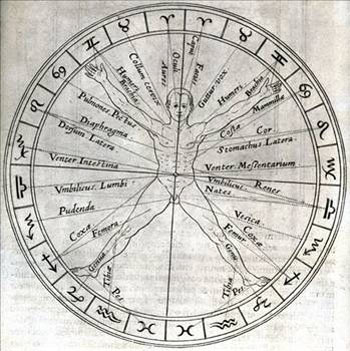 ♈ ♈
♉ ♉
♊
♋ ♋
♌ ♌
♎ ♎
♏ ♏
♒ ♒
♓ ♓
Caput Facies
Oculi
Aures
Collum
Humeri
Brachia
Guttur
Humeri
Brachia
Mammilla
Pulmones Pectus
Diaphragma
Dorsum Latera
Venter Intestina
Vmbilicus Lumbi
Pudenda
Coxæ Femora
Genua
Tibiæ
Pes
Costæ Cor
Stomachus Latera
Venter Mesentarium
Vmbilicus Renes
Nates
Vesica
Coxæ
Femur
Genu
Tibiæ
Pes